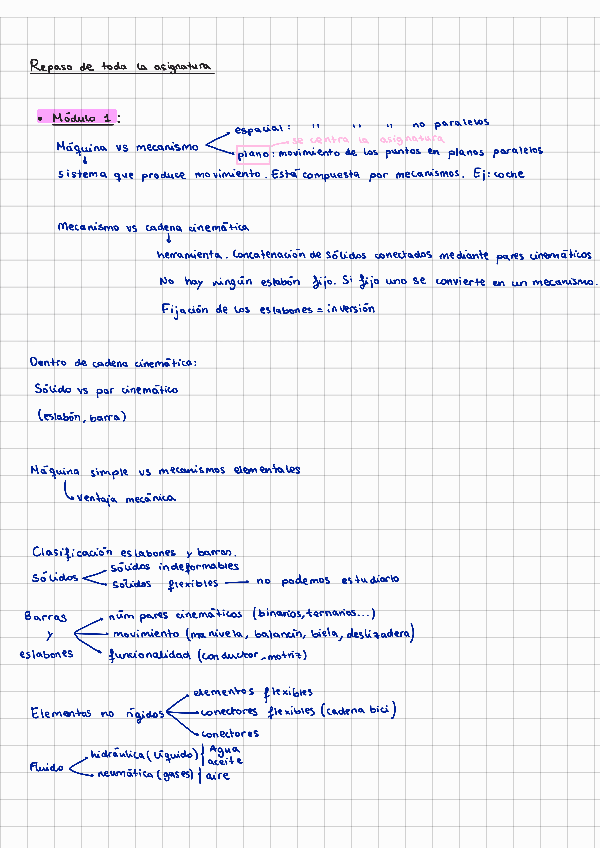 Repaso de toda la asignatura
• Módulo 1:
espacial: " " " no paralelos
se centra la asignatura
Máquina vs mecanismo
plano: movimiento de los puntos en planos paralelos
sistema que produce movimiento. Está compuesta por mecanismos. Ej: coche
Mecanismo vs cadena cinemática
herramienta. Concatenación de sólidos conectados mediante pares cinemáticos
No hay ningún eslabón fijo. Si fijo uno se convierte en un mecanismo.
Fijación de los eslabones = inversión
Dentro de cadena cinemática:
Sólido vs par cinemático
(eslabón, barra)
Máquina simple vs mecanismos elementales
ventaja mecánica
Clasificación eslabones y barras.
sólidos indeformables
Sólidos
sólidos flexibles — no podemos estudiarlo
Barras
núm pares cinemáticos (binarios, ternarios...)
y
movimiento (manivela, balancín, biela, deslizadera)
eslabones
funcionalidad (conductor, motriz)
elementos flexibles
Elementos no rígidos
conectores flexibles (cadena bici)
conectores
hidráulica (líquido) | Agua
aceite
Fluido
neumática (gases) | aire